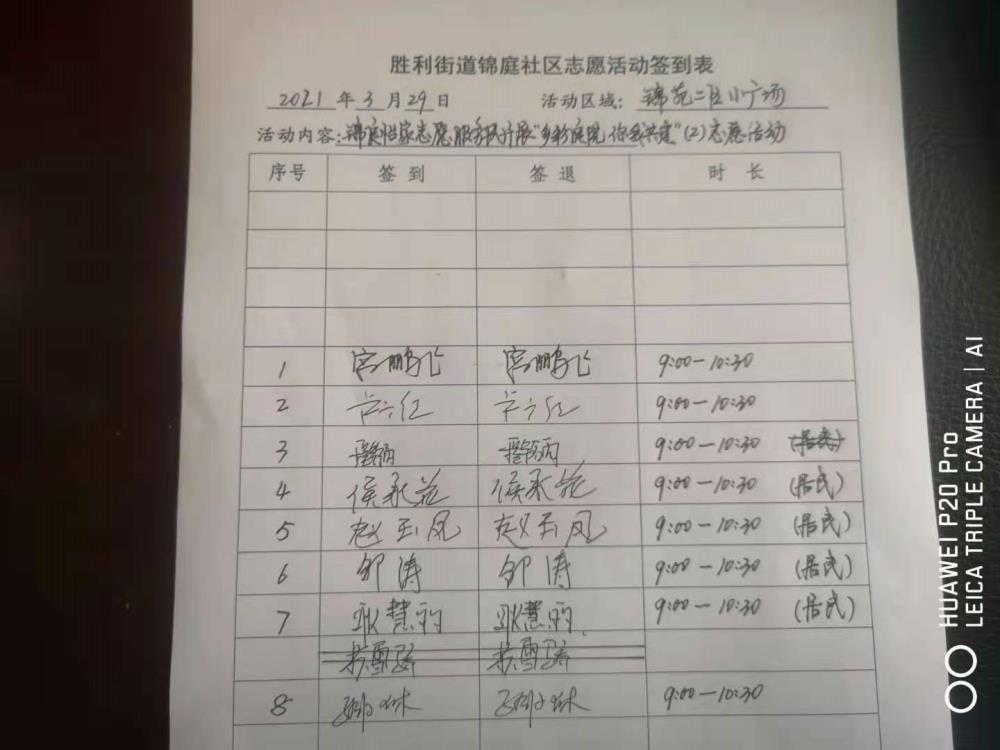 胜利街道锦庭社区志愿活动签到表
2021 年 3 月 29 日 活动区域: 锦苑二区小广场
活动内容: 锦庭怡家志愿服务队开展"多彩庭院 你我共建"(2)志愿活动
序号 签到 签退 时长
1 宫鹏飞 宫鹏飞 9:00-10:30
2 9:00-10:30
3 9:00-10:30 (居民)
4 侯承花 侯承花 9:00-10:30 (居民)
5 赵玉凤 赵玉凤 9:00-10:30 (居民)
6 邹涛 邹涛 9:00-10:30 (居民)
7 耿慧 耿慧 9:00-10:30 (居民)
雪 雪
8 9:00-10:30
HUAWEI P20 Pro
LEICA TRIPLE CAMERA | AI